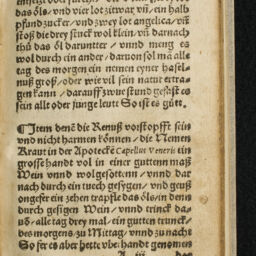 das öls/ vnd vier lot zitwar vñ/ ein halb
pfund zucker/ vnd zwey lot angelica/ vñ
stoß die drey stuck wol klein/ vñ darnach
thů das öl daruntter / vnnd meng es
wol durch ein ander/ daruon sol mā alle
tag des morgen ein nemen eyner hasel-
nuß groß/ oder wie vil sein natur ertra-
gen kann / darauff zwue stund gefast es
sein alle oder junge leute So ist es gůtt.
¶ Item denē die Renuß vorstopfft sein
vnd nicht harmen können / die Nemen
Kraut in der Apoteck Capelleꝛ Veneris ein
grosse handt vol in einer guttenn maß
Wein vnnd wolgesottenn / vnnd dar
nach durch ein tuech gesygen/ vnd geuß
ongefer ein zehen trapfle das öls/ in denn
durch gesigen Wein/ vnnd trinck da-
uō/ alle tag drey mal/ ein gutten trunck/
des morgens/ zu Mittag/ vnnd zu nachts
So ser es aber hette vbeꝛhandt genomen